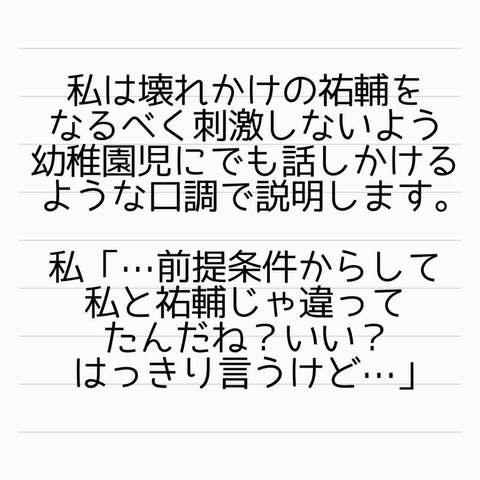 私は壊れかけの祐輔を
なるべく刺激しないよう
幼稚園児にでも話しかける
ような口調で説明します。
私「…前提条件からして
私と祐輔じゃ違って
たんだね？いい？
はっきり言うけど…」